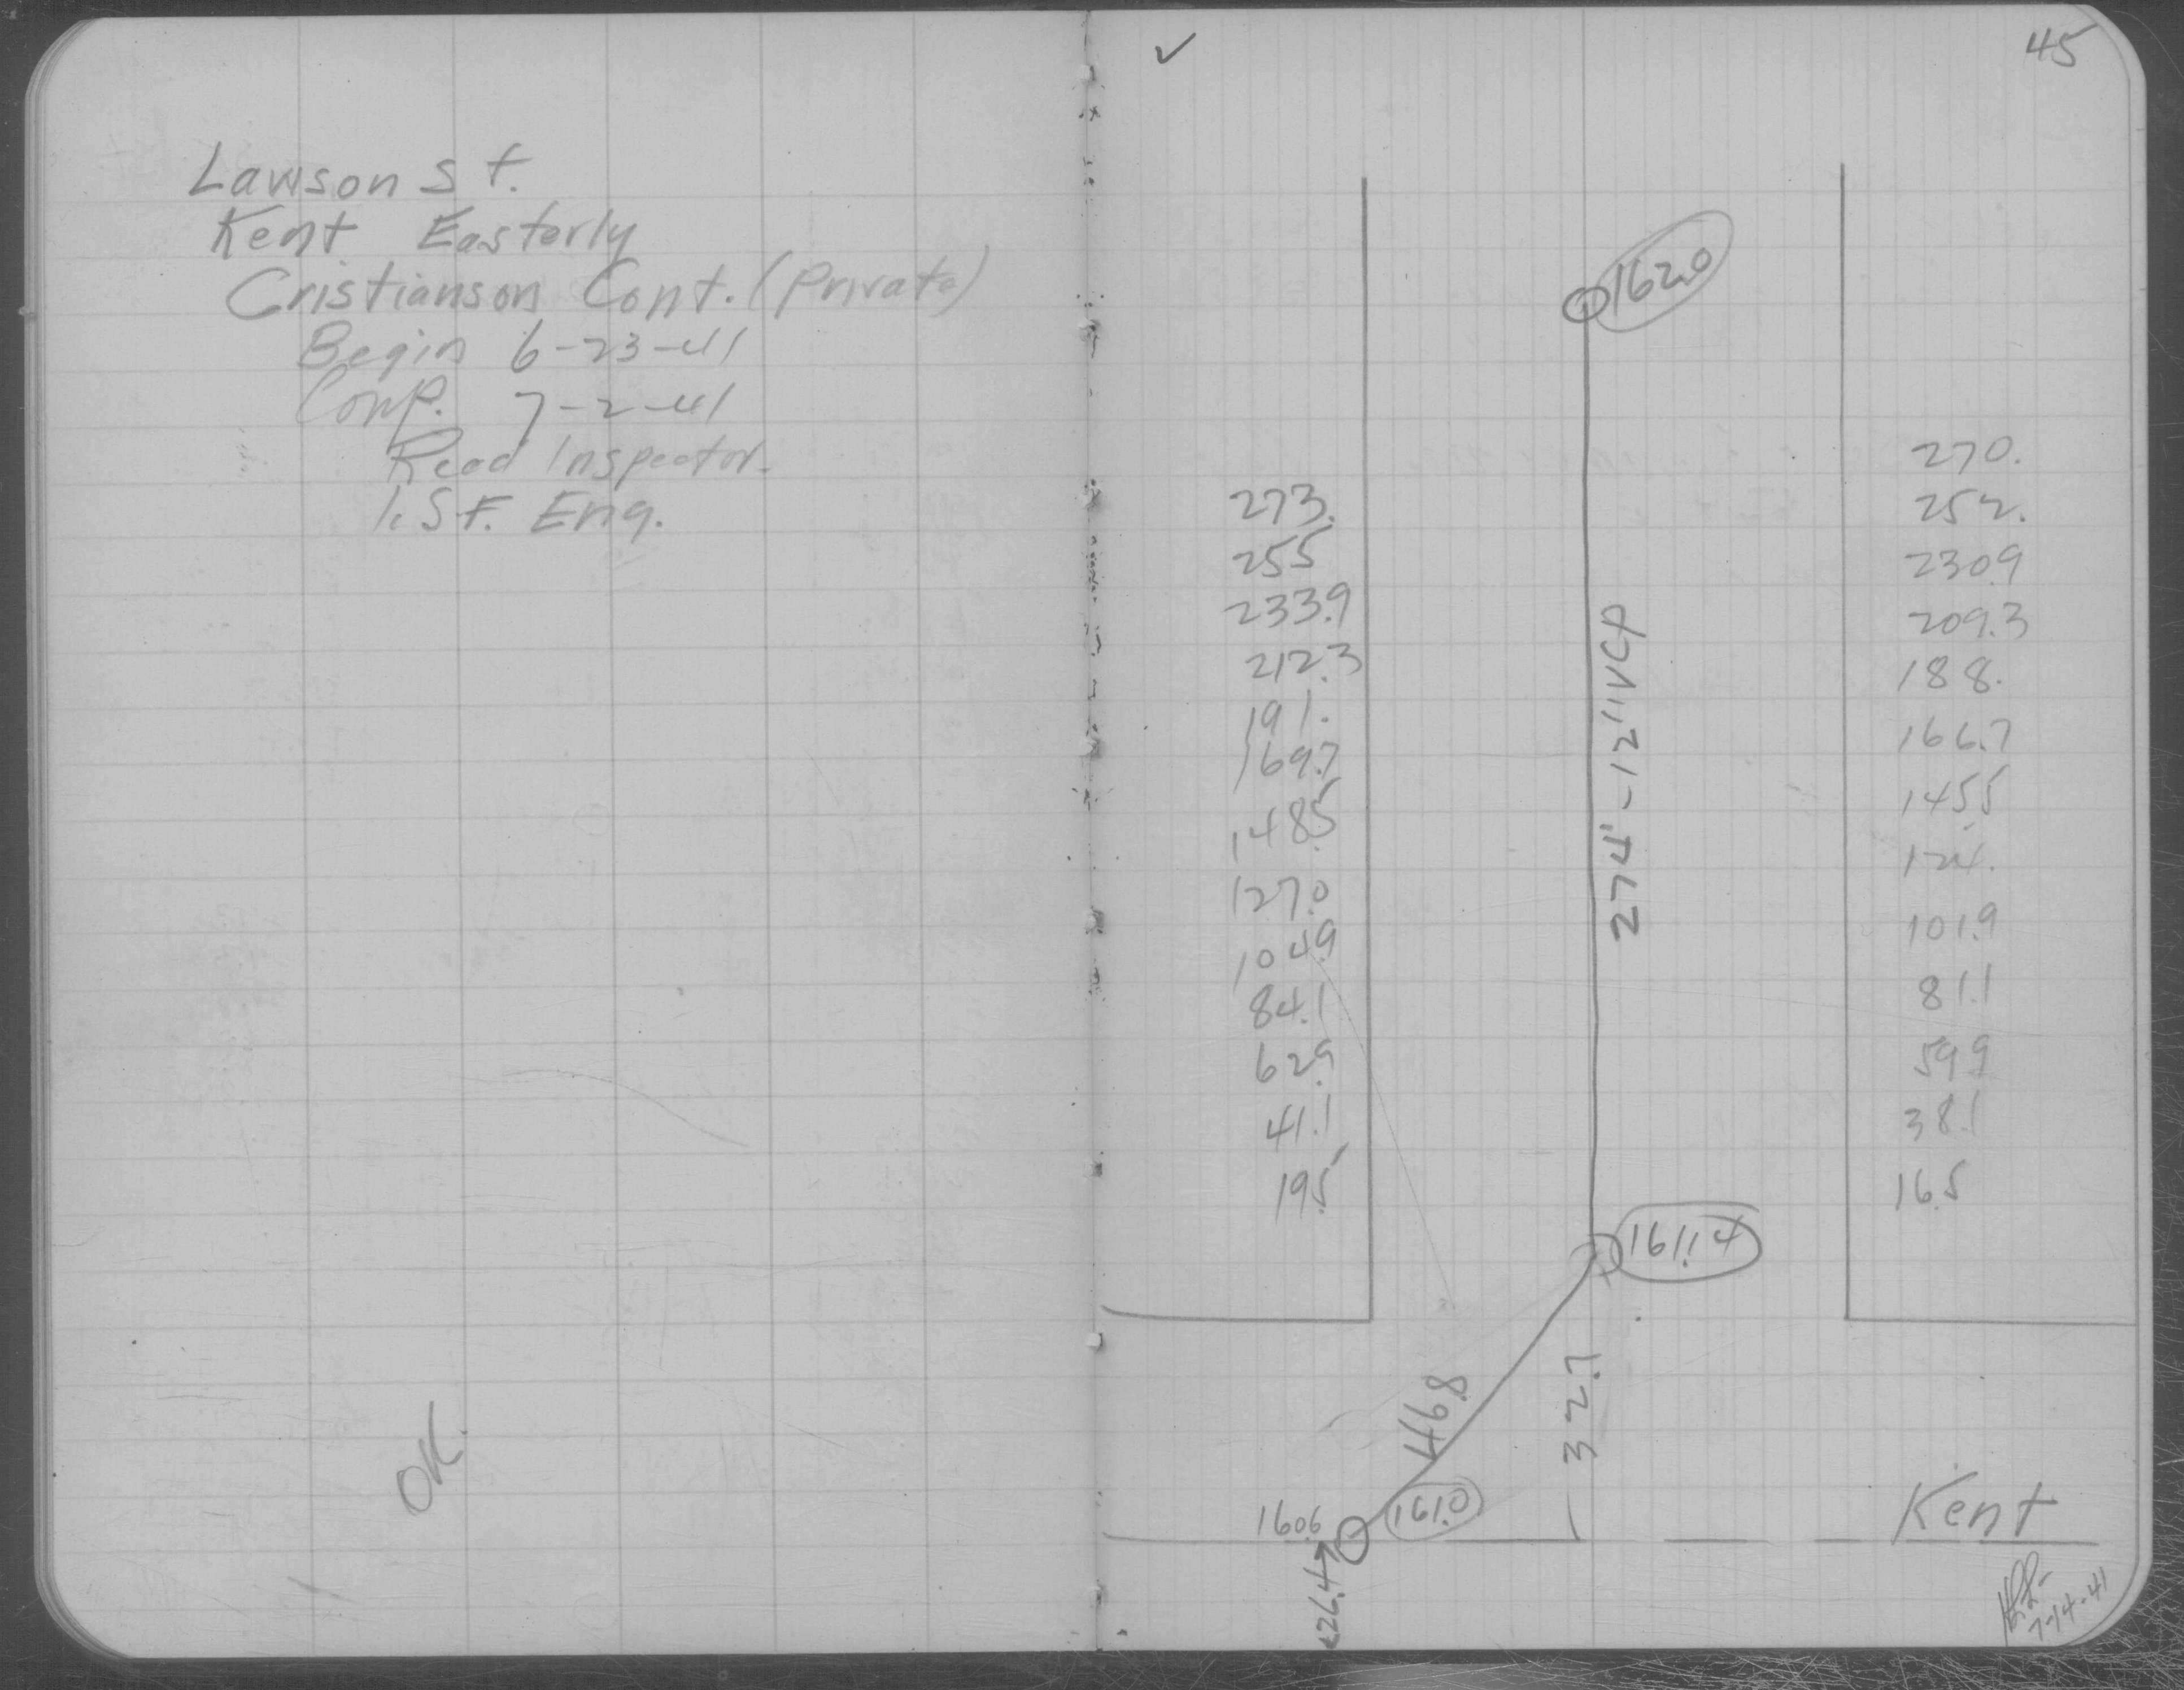 Lawson St.
Kent Easterly
Cristianson Cont. (Private)
Begin 6-23-41
Comp. 7-2-41
Read Inspector.
I.S.F. Eng.
OK.
✓
45
162.0
274'-12"VCP
273.
255
233.9
212.3
191.
169.7
148.5
127.0
104.9
84.1
62.9
41.1
19.5
270.
252.
230.9
209.3
188.
166.7
145.5
124.
101.9
81.1
59.9
38.1
16.5
161.14
46.8
32.7
160.6
161.0
26.4
Kent
7-14-41